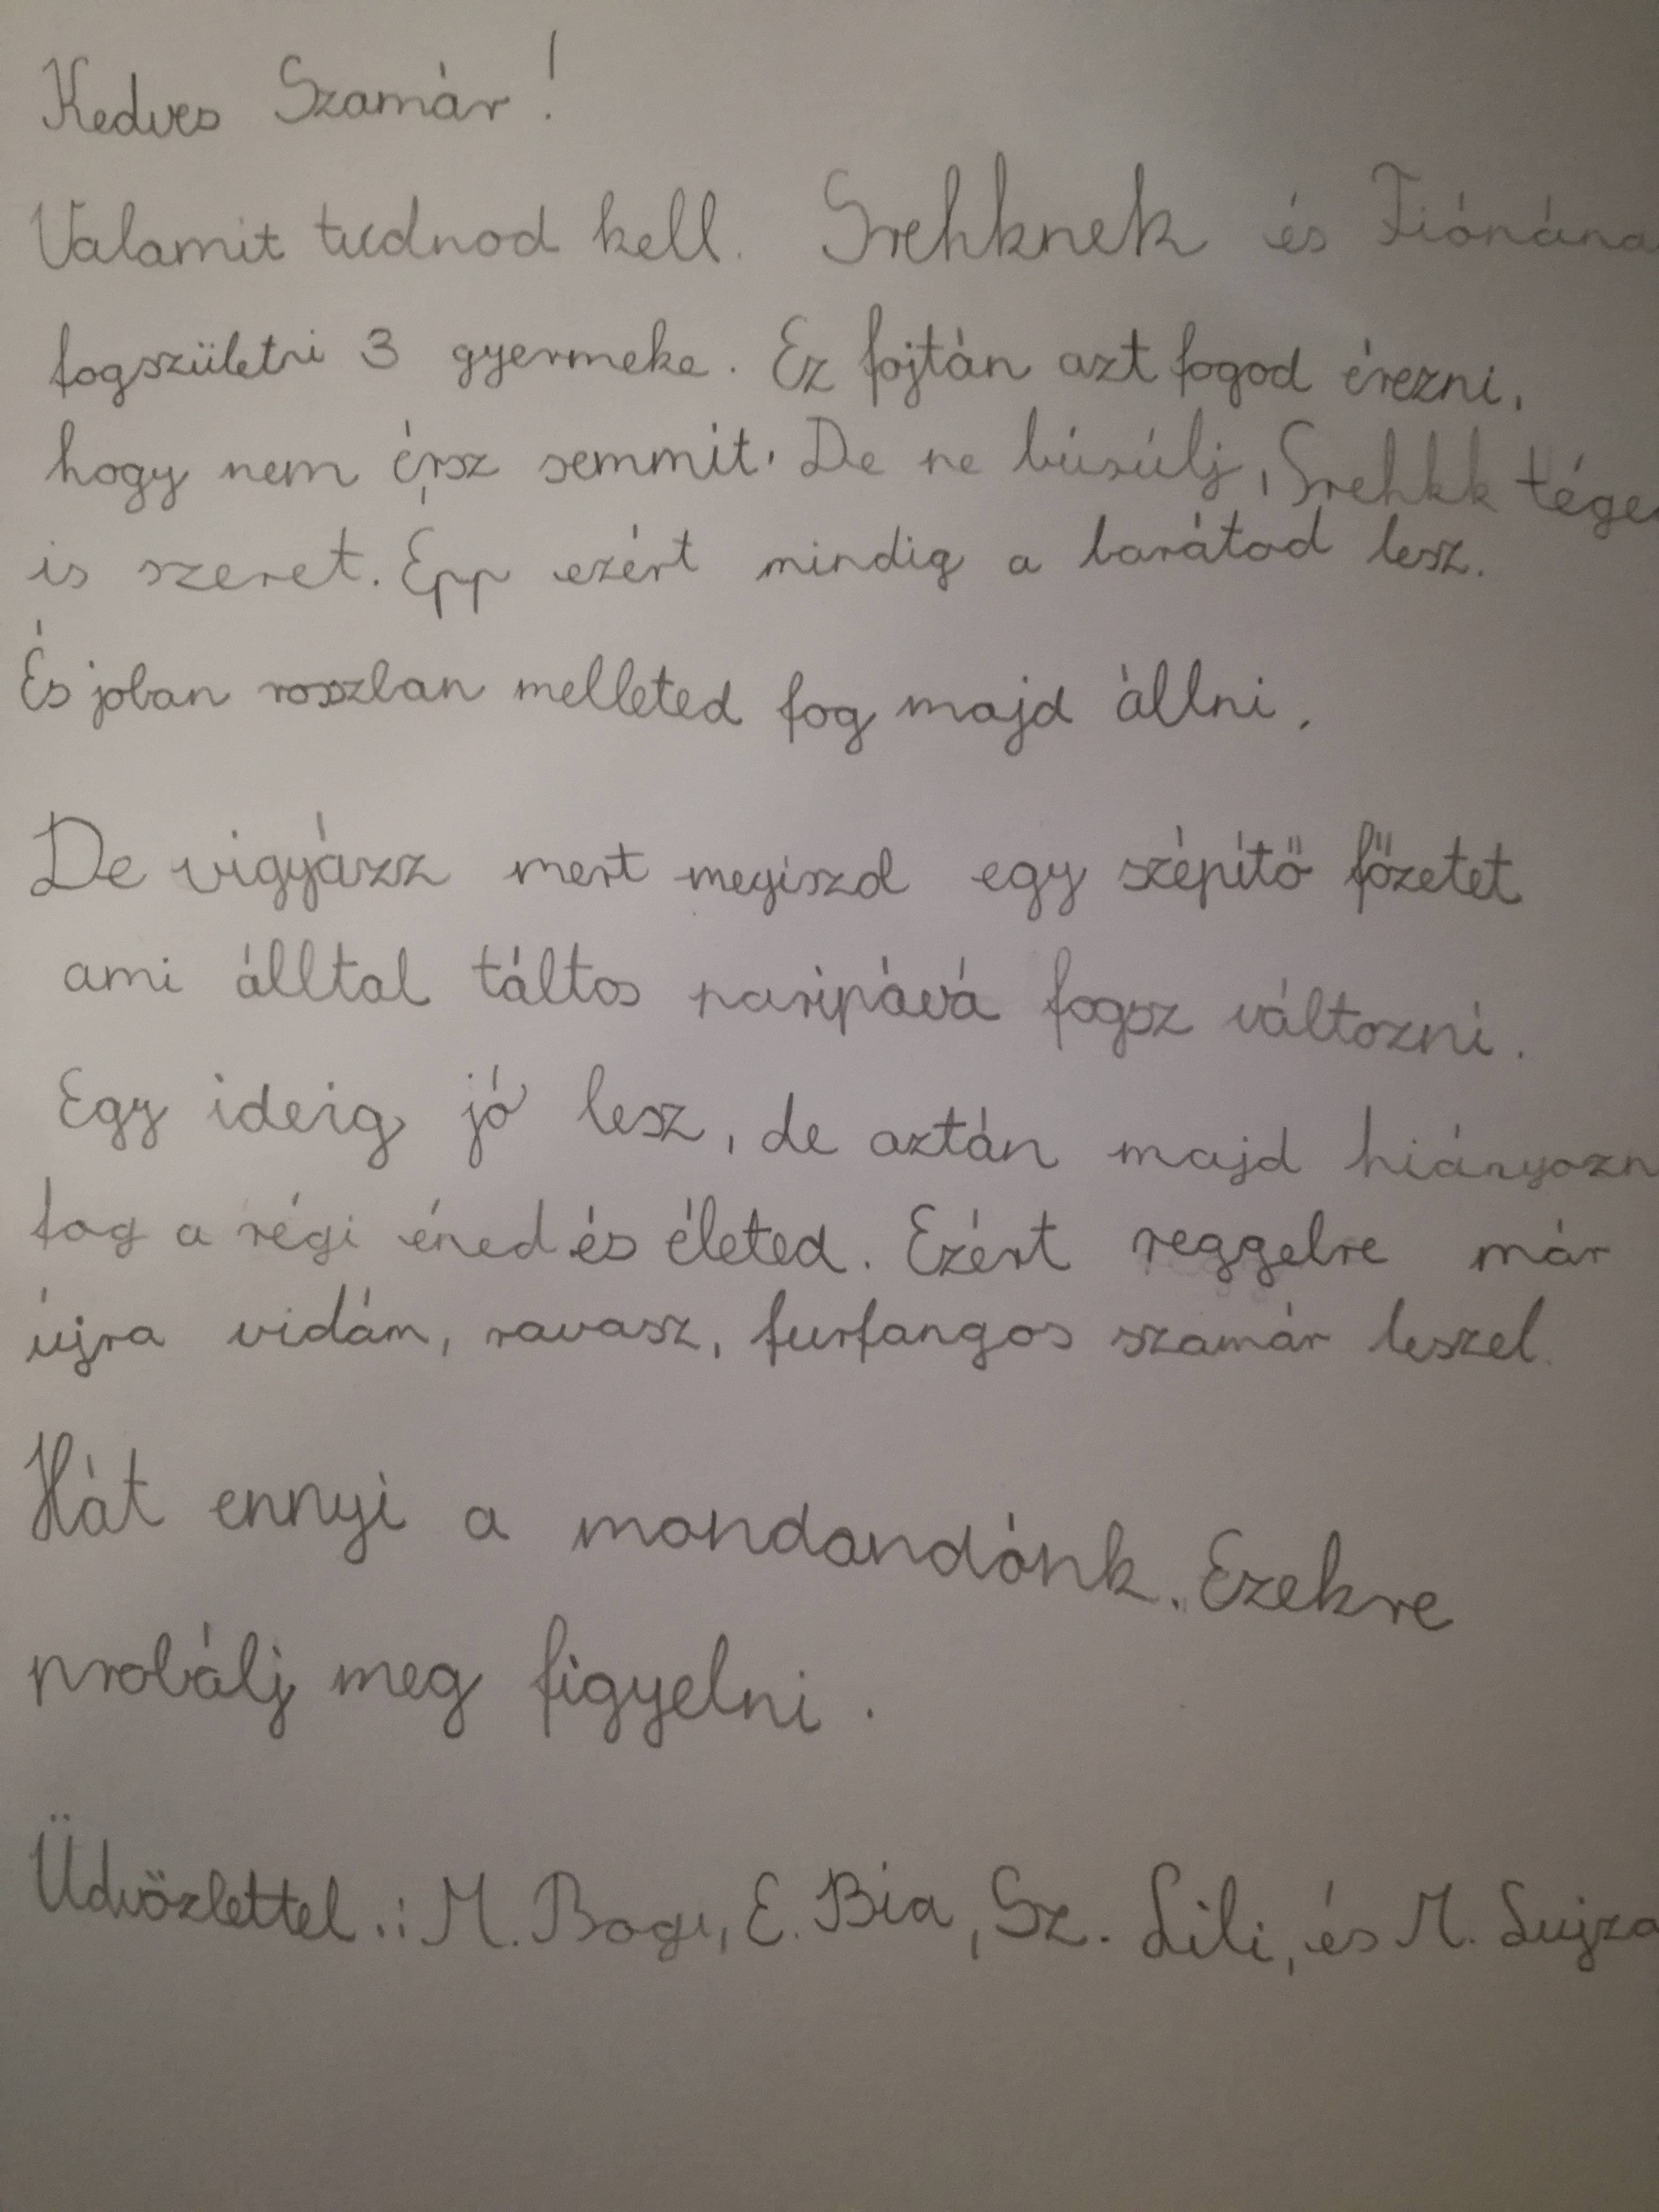 Kedves Szamár!
Valamit tudnod kell. Srehknek és Fiónána
fogszületni 3 gyermeke. Ez fojtán azt fogod érezni,
hogy nem érsz semmit. De ne búsúlj, Srehkk tége
is szeret. Epp ezért mindig a barátod lesz.
És joban roszban melleted fog majd állni.
De vigyázz mert megiszol egy szépítő főzetet
ami álltal táltos paripává fogsz változni.
Egy ideig jó lesz, de aztán majd hiányozn
fog a régi éned és életed. Ezért reggelre már
újra vidám, ravasz, furfangos szamár leszel.
Hát ennyi a mondandónk. Ezekre
probálj meg figyelni.
Üdvözlettel.: M. Bogi, E. Bia, Sz. Lili, és M. Lujza